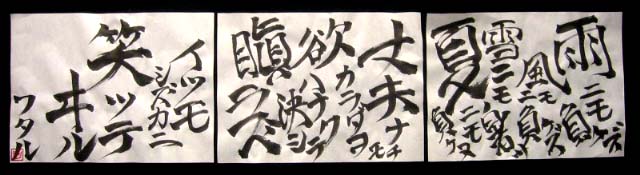 雨ニモ負ケズ
風ニモ負ケズ
雪ニモ
夏
ニモ負ケヌ
丈夫ナ
カラダヲモチ
欲ハナクテ
決シ
瞋ラズ
イツモ
シズカニ
笑ッテ
ヰル
ワタル